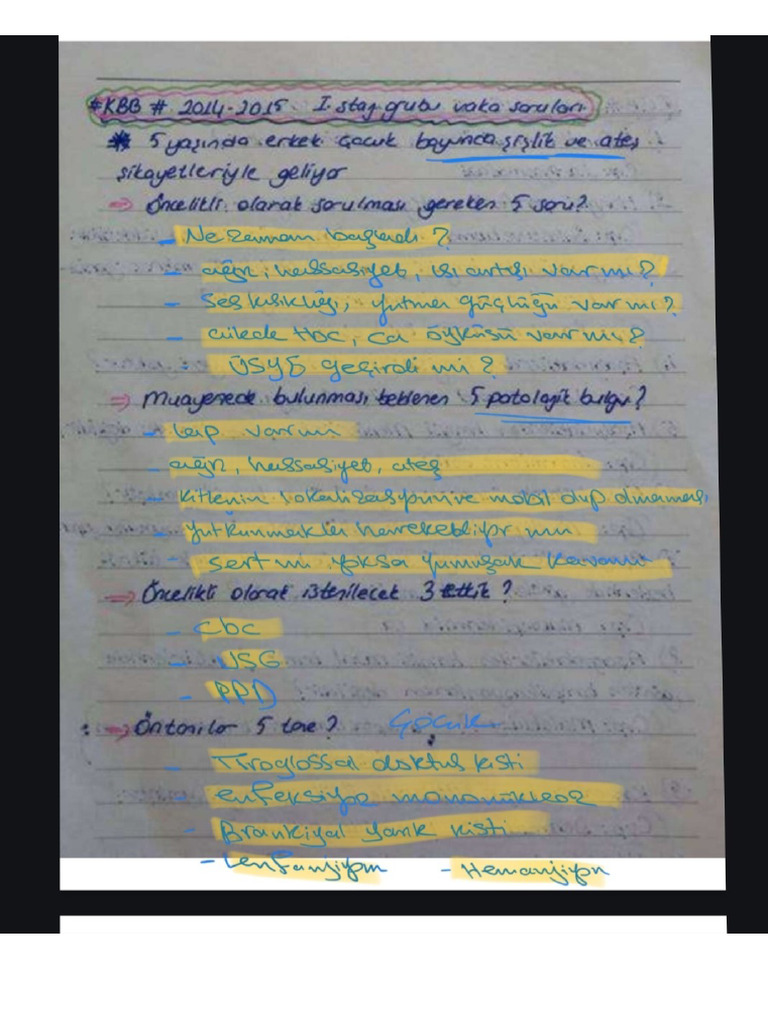 #KBB # 2014-2015 I. staj grubu vaka soruları
* 5 yaşında erkek çocuk boyunda şişlik ve ateş
şikayetleriyle geliyor
⇒ Öncelikli olarak sorulması gereken 5 soru?
- Ne zaman başladı?
- ağrı, hassasiyet, ısı artışı var mı?
- Ses kısıklığı, yutma güçlüğü var mı?
- ailede tbc, ca öyküsü var mı?
- ÜSYE geçirdi mi?
⇒ Muayenede bulunması beklenen 5 patolojik bulgu?
- Lap var mı
- ağrı, hassasiyet, ateş
- Kitlenin lokalizasyonu ve mobil olup olmaması
- yutkunmakla hareketliyor mu
- sert mi yoksa yumuşak kıvamlı
⇒ Öncelikli olarak istenilecek 3 tetkik?
- Cbc
- USG
- PPD
⇒ Öntanılar 5 tane? Çocuk
- Tiroglossal duktus kisti
- enfeksiyoz mononükleoz
- Brankiyal yarık kisti
- Lenfanjiyom - Hemanjiyom